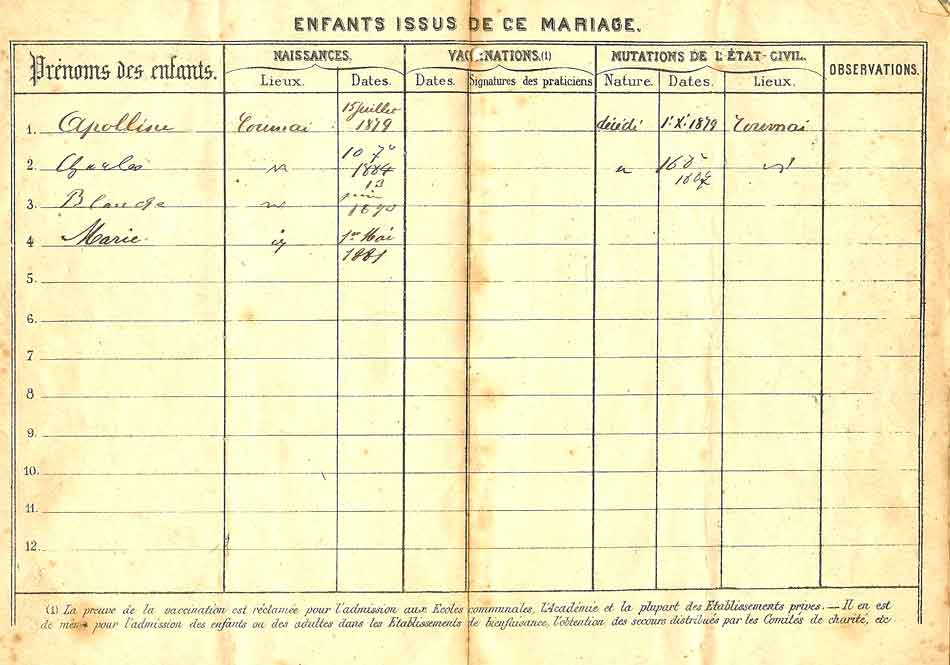 ENFANTS ISSUS DE CE MARIAGE.
Prénoms des enfants. NAISSANCES. VACCINATIONS.(1) MUTATIONS DE L'ÉTAT-CIVIL. OBSERVATIONS.
Lieux. Dates. Dates. Signatures des praticiens Nature. Dates. Lieux.
15 Juillet
1. Apolline Tournai 1879 décédé 1r Xe 1879 Tournai
10 7e
2. Charles 1884 16
13
juin
3. Blanche 1890
4 Marie. id 1er Mai
1881
5.
6.
7
8
9.
10.
11.
12.
(1) La preuve de la vaccination est réclamée pour l'admission aux Ecoles communales, l'Académie et la plupart des Etablissements privés. — Il en est
de même pour l'admission des enfants ou des adultes dans les Etablissements de bienfaisance, l'obtention des secours distribués par les Comités de charité, etc.